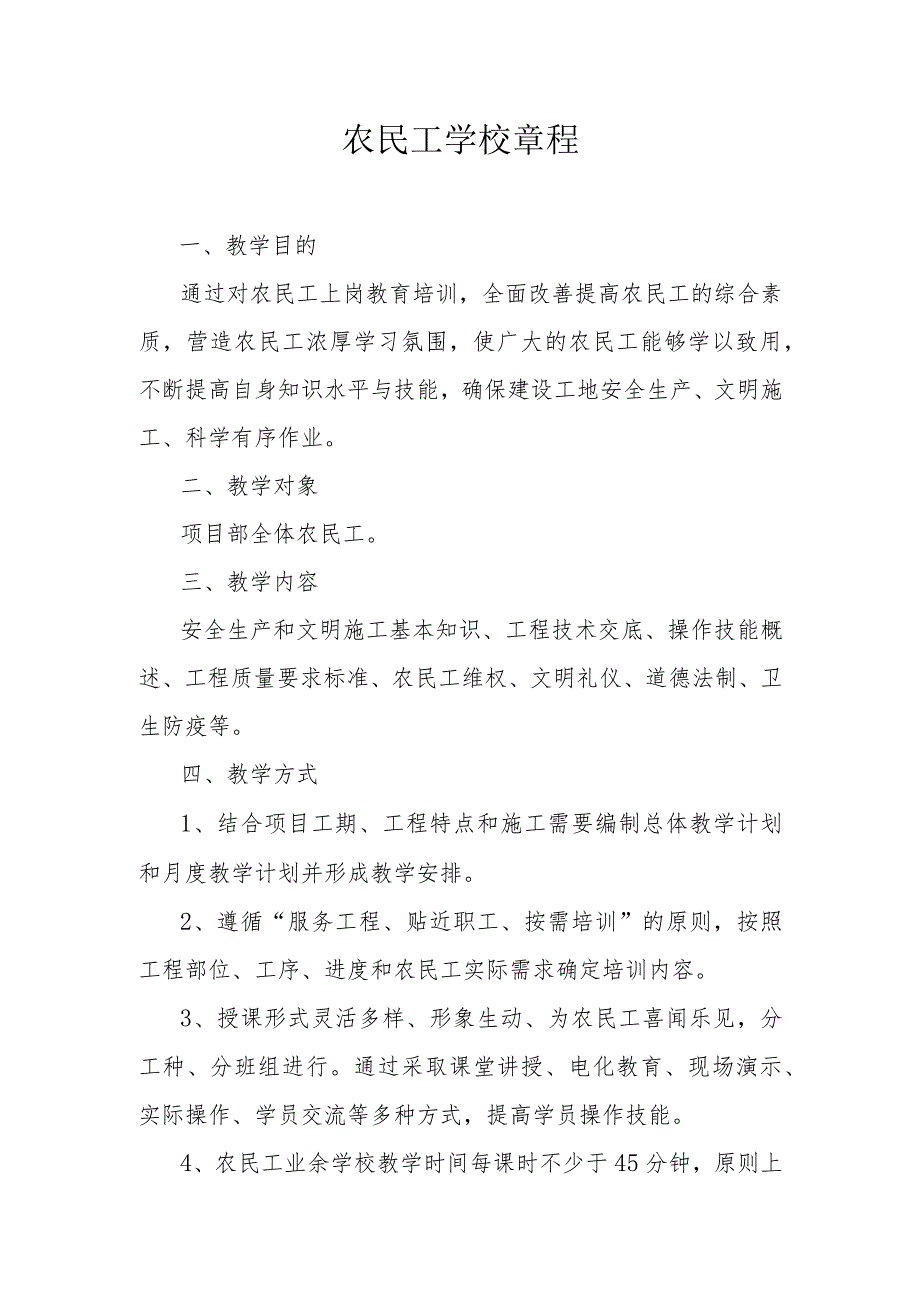 农民工学校章程
一、教学目的
通过对农民工上岗教育培训，全面改善提高农民工的综合素
质，营造农民工浓厚学习氛围，使广大的农民工能够学以致用，
不断提高自身知识水平与技能，确保建设工地安全生产、文明施
工、科学有序作业。
二、教学对象
项目部全体农民工。
三、教学内容
安全生产和文明施工基本知识、工程技术交底、操作技能概
述、工程质量要求标准、农民工维权、文明礼仪、道德法制、卫
生防疫等。
四、教学方式
1、结合项目工期、工程特点和施工需要编制总体教学计划
和月度教学计划并形成教学安排。
2、遵循“服务工程、贴近职工、按需培训”的原则，按照
工程部位、工序、进度和农民工实际需求确定培训内容。
3、授课形式灵活多样、形象生动、为农民工喜闻乐见，分
工种、分班组进行。通过采取课堂讲授、电化教育、现场演示、
实际操作、学员交流等多种方式，提高学员操作技能。
4、农民工业余学校教学时间每课时不少于45分钟，原则上